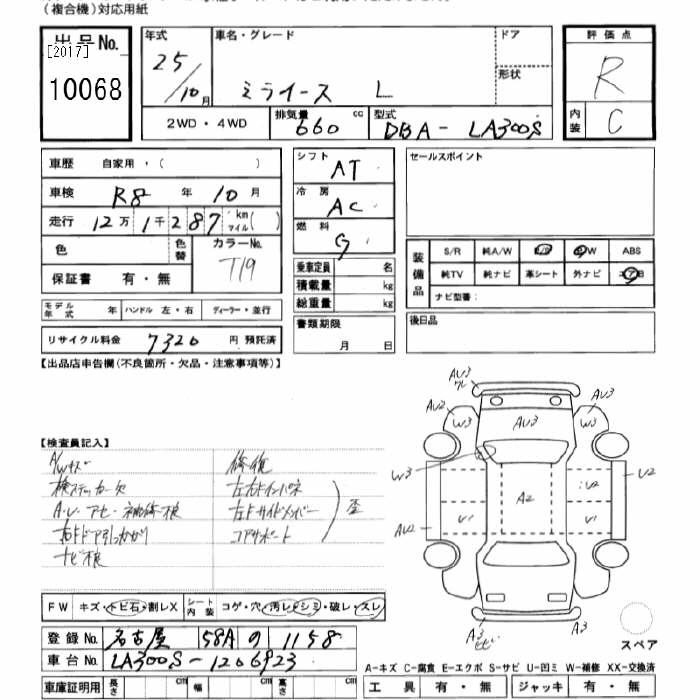 (複合機)対応用紙
出品No. [2017] 10068
年式 25/10月
車名・グレード ミライース L
ドア
形状
評価点 R
内装 C
2WD・4WD
排気量 660 cc
型式 DBA-LA300S
車歴 自家用・( )
車検 R8年 10月
走行 12万1千287 km マイル( )
色
色替
カラーNo. T19
保証書 有・無
モデル年式 年 ハンドル 左・右 ディーラー・並行
リサイクル料金 7320 円 預託済
シフト AT
冷房 AC
燃料 G
乗車定員 名
積載量 kg
総重量 kg
書類期限 月 日
セールスポイント
装備品 S/R 純A/W P/S P/W ABS
純TV 純ナビ 革シート 外ナビ エアB
ナビ型番:
後日品
【出品店申告欄(不良箇所・欠品・注意事項等)】
【検査員記入】
A/Wキズ
検ステッカー欠
ナビ痕
修復
左右Fインパネ
左Fサイドメンバー
コアサポート
歪
AU3
AU2 W3 AU3 W3 AU3
W3
U2 U2
A2
AU2 U1 U1
A3 A3
スペア
FW キズ・トビ石・割レX シート内装 コゲ・穴・汚レ・シミ・破レ・スレ
登録No. 名古屋 58A の 1158
車台No. LA300S-1206923
車庫証明用 長さ cm 幅 cm 高さ cm
A-キズ C-腐食 E-エクボ S-サビ U-凹ミ W-補修 XX-交換済
工具 有・無 ジャッキ 有・無